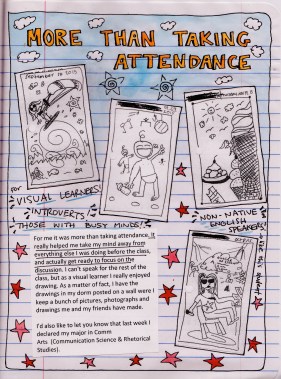 MORE THAN TAKING
ATTENDANCE
SEPTEMBER 16 2013
for
VISUAL LEARNERS
INTROVERTS
THOSE WITH BUSY MINDS!
NON-NATIVE
ENGLISH
SPEAKERS!
For me it was more than taking attendance. It
really helped me take my mind away from
everything else I was doing before the class,
and actually get ready to focus on the
discussion. I can't speak for the rest of the
class, but as a visual learner I really enjoyed
drawing. As a matter of fact, I have the
drawings in my dorm posted on a wall were I
keep a bunch of pictures, photographs and
drawings me and my friends have made.
I'd also like to let you know that last week I
declared my major in Comm
Arts (Communication Science & Rhetorical
Studies).